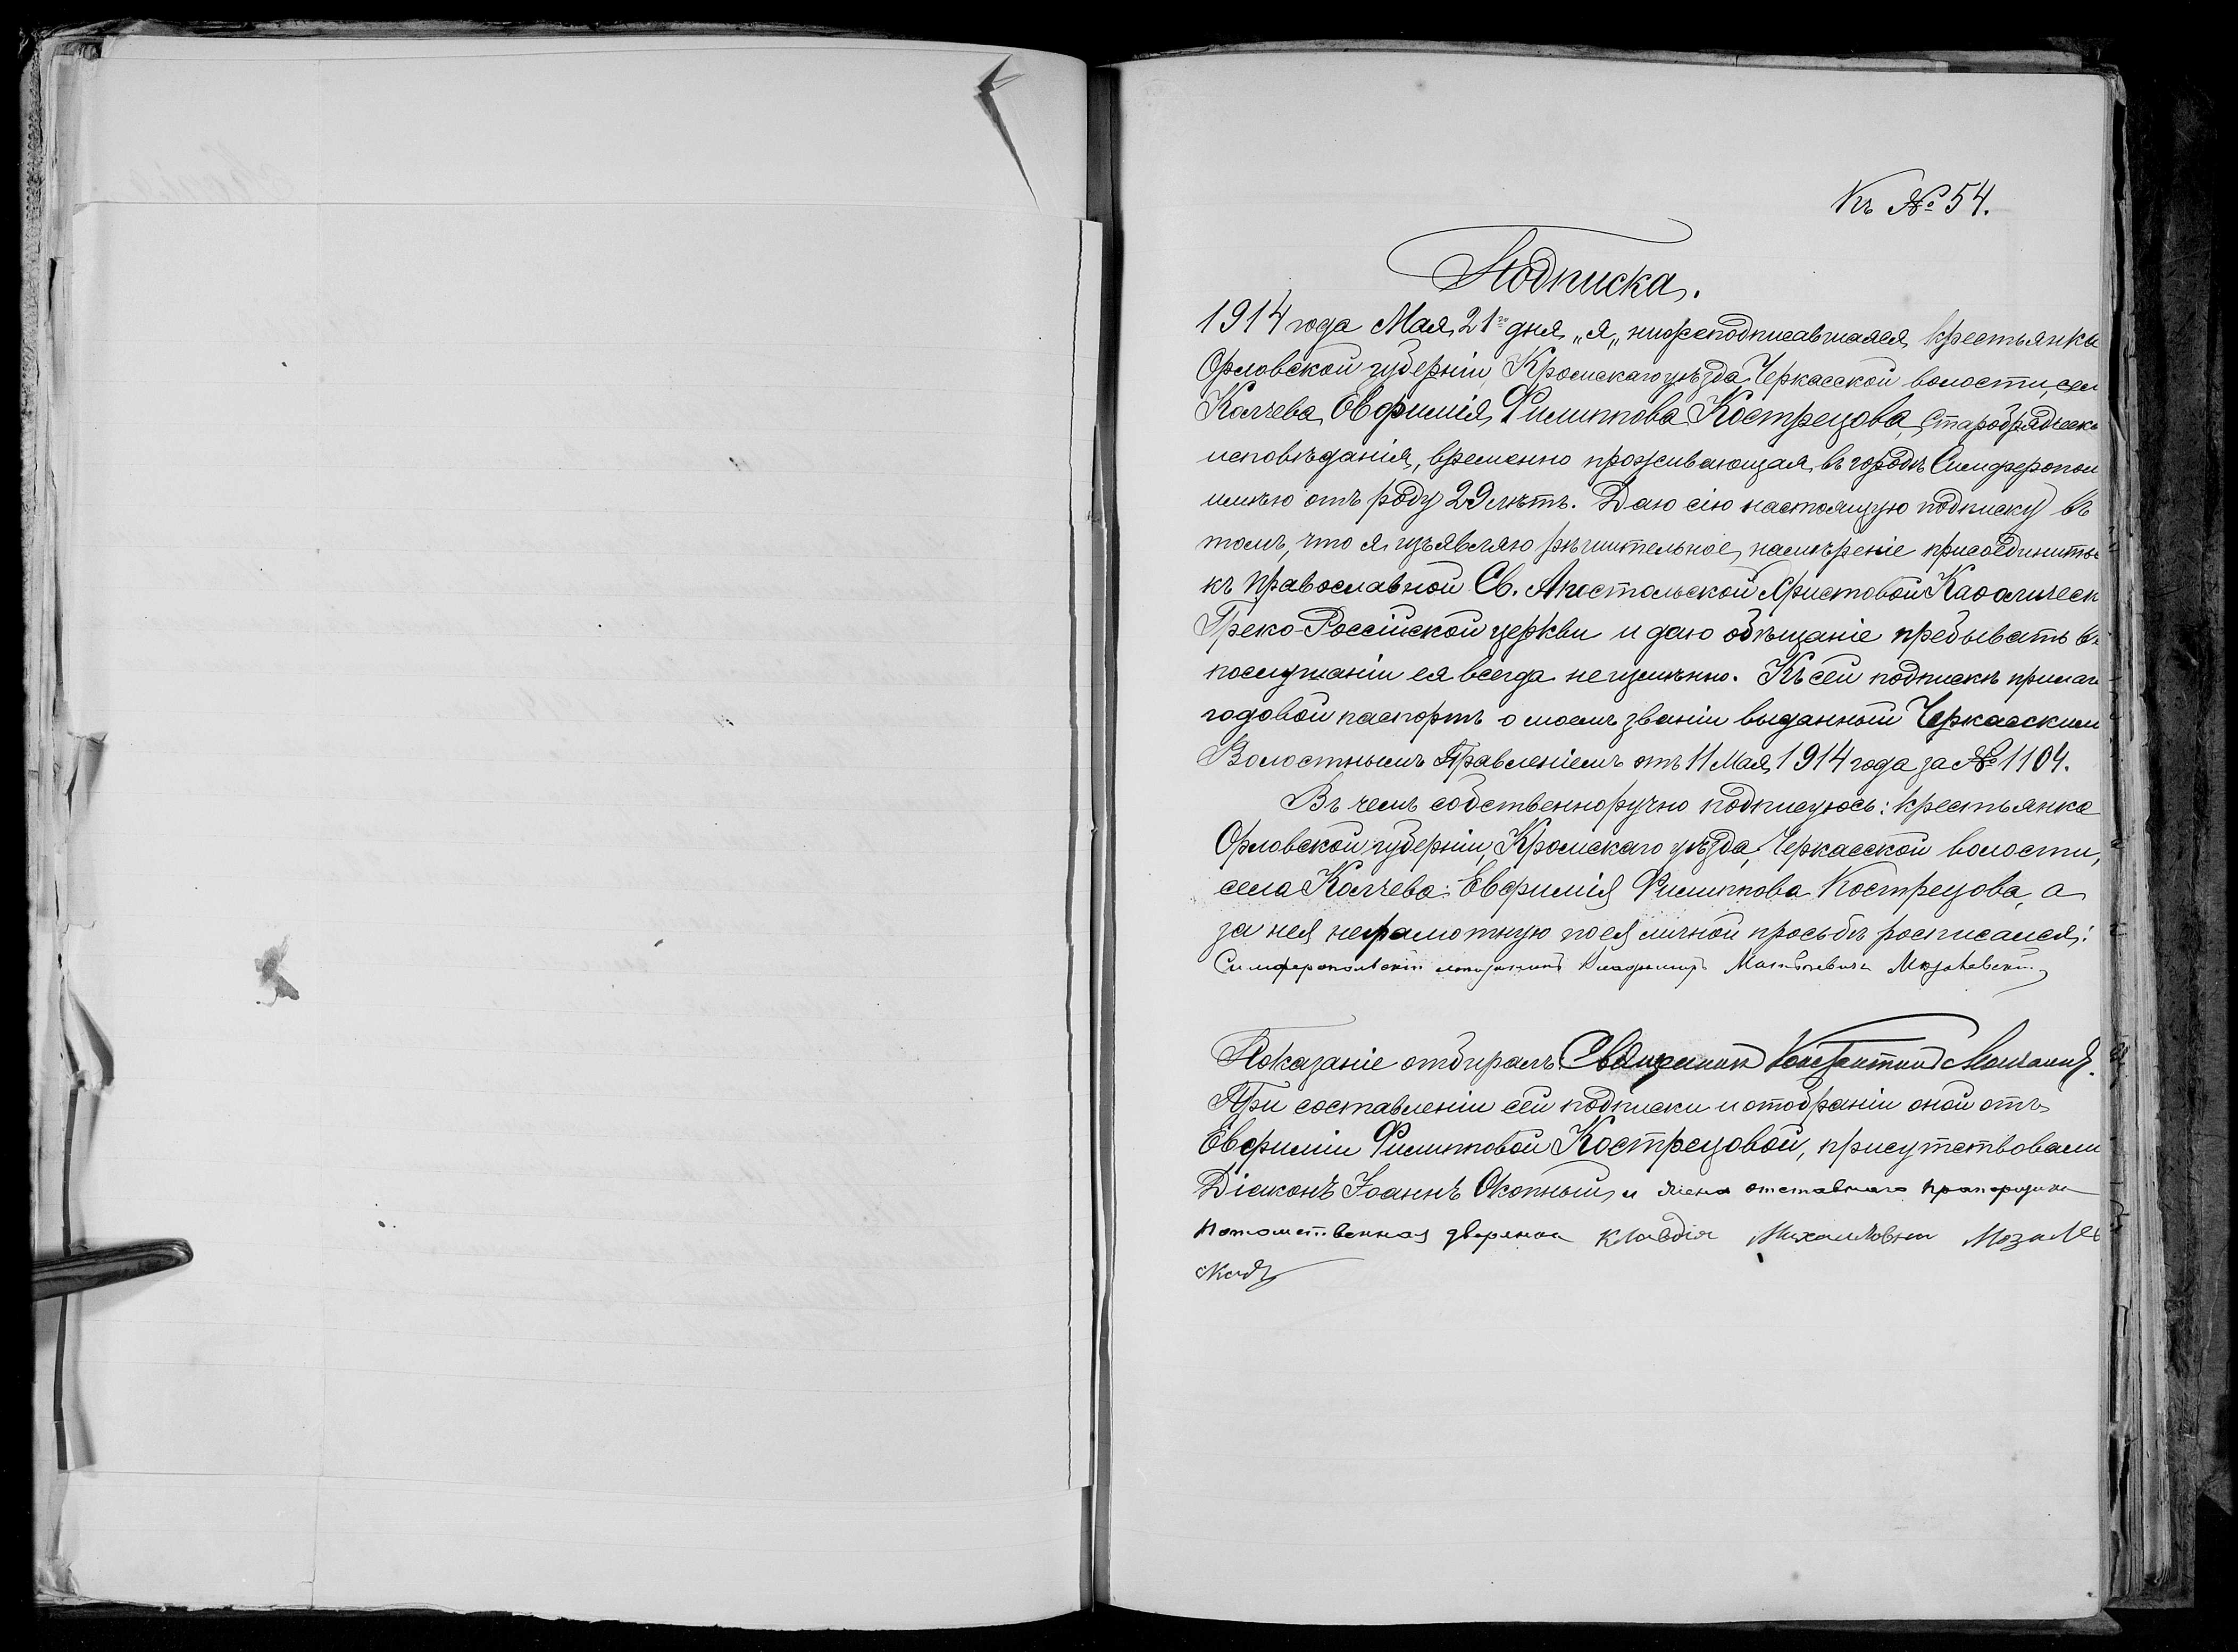 Къ № 54.
Подписка.
1914 года Мая 21го дня „я„ нижеподписавшаяся крестьянка
Орловской губерніи, Кромскаго уѣзда, Черкасской волости, сел
Колчева, Евфимія Филиппова Кострецова, старобрядческ
исповѣданія, временно проживающая въ городѣ Симферопол
имѣю отъ роду 29 лѣтъ. Даю сію настоящую подписку въ
томъ, что я изъявляю рѣшительное намѣреніе присоединитьс
къ православной Св. Апостольской Христовой Каѳолическ
Греко-Россійской церкви и даю обѣщаніе пребывать въ
послушаніи ея всегда неизмѣнно. Къ сей подпискѣ прилаг
годовой паспортъ о моемъ званіи выданный Черкасским
Волостнымъ Правленіемъ отъ 11 Мая 1914 года за № 1104.
Въ чемъ собственноручно подписуюсь: крестьянка
Орловской губерніи, Кромскаго уѣзда, Черкасской волости,
села Колчева: Евфимія Филиппова Кострецова, а
за нея неграмотную по ея личной просьбѣ росписался:
Симферопольскій Владимиръ Матвѣевичъ
Показаніе отбиралъ Священникъ Константинъ
При составленіи сей подписки и отобраніи оной отъ
Евфиміи Филипповой Кострецовой, присутствовали
Діаконъ Іоаннъ Окопный и жена отставнаго прапорщика
потомственная дворянка Клавдія Михайловна
ская